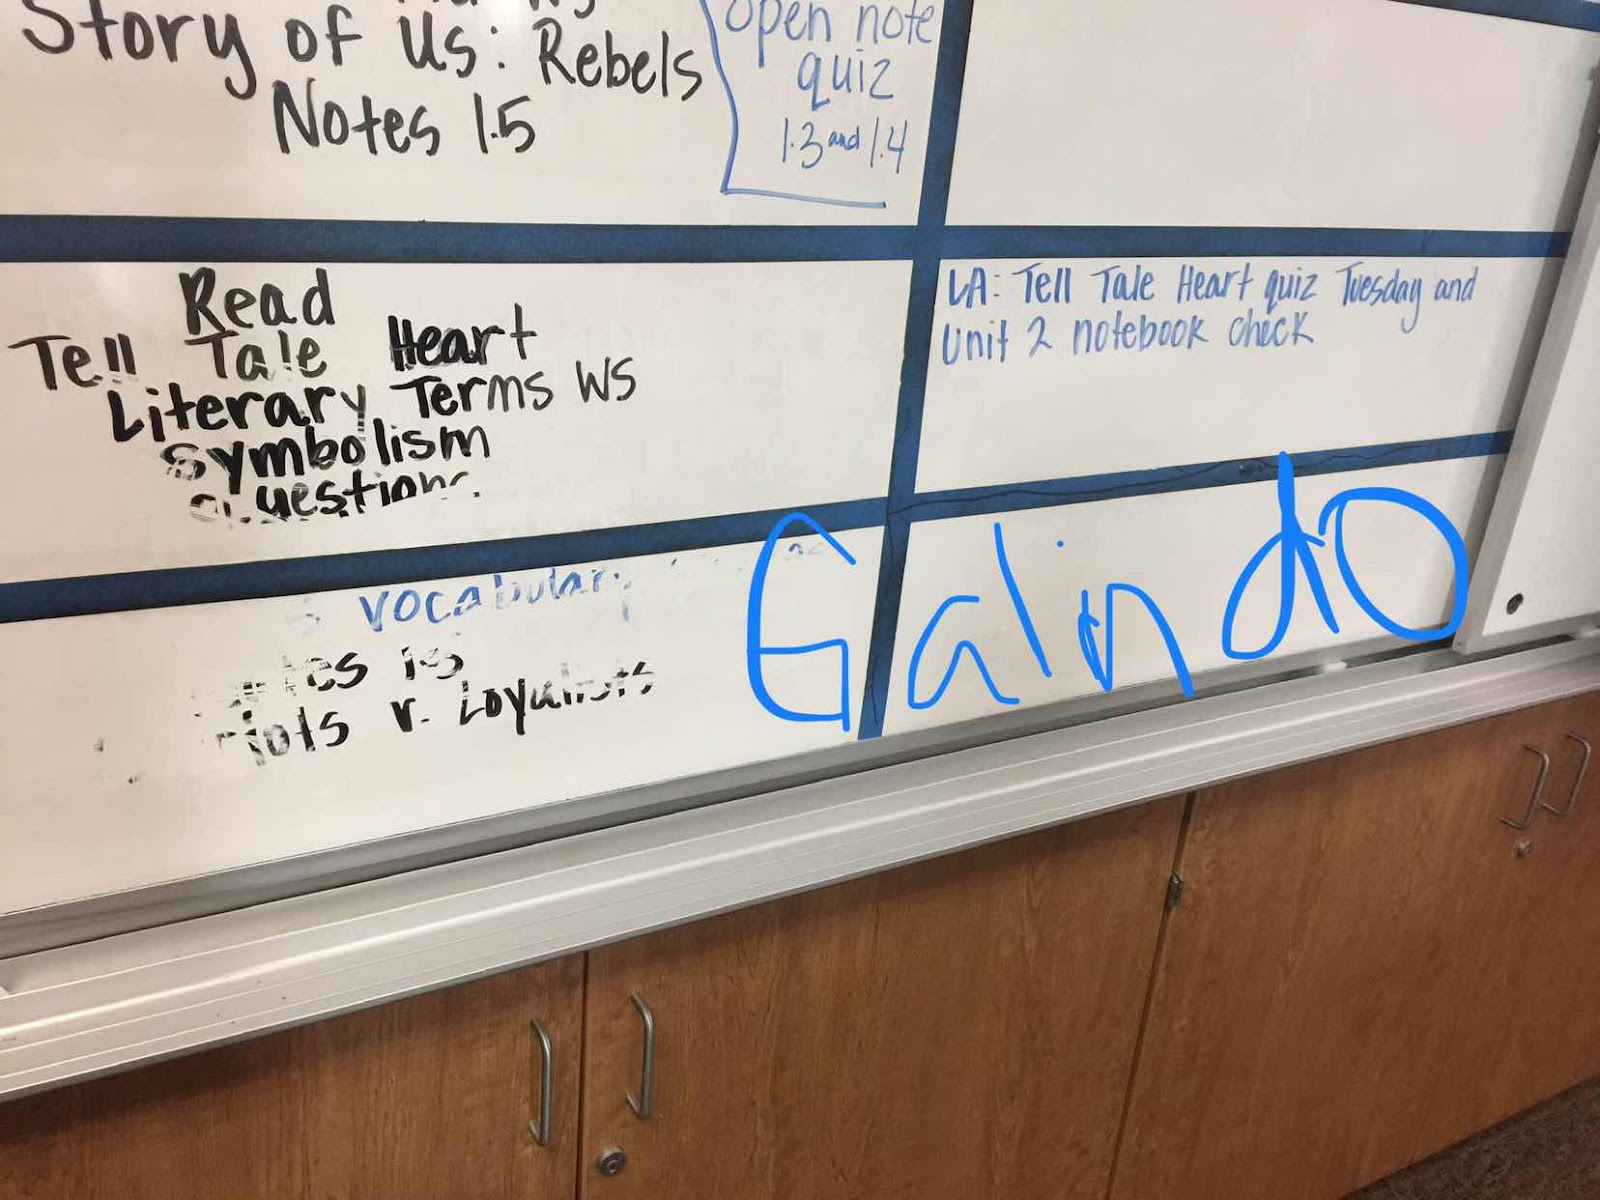 Story of Us: Rebels
Notes 1.5
Open note
quiz
1.3 and 1.4
Read
Tell Tale Heart
Literary Terms WS
Symbolism
Questions
LA: Tell Tale Heart quiz Tuesday and
Unit 2 notebook check
vocabulary
v. Loyalists
Galindo